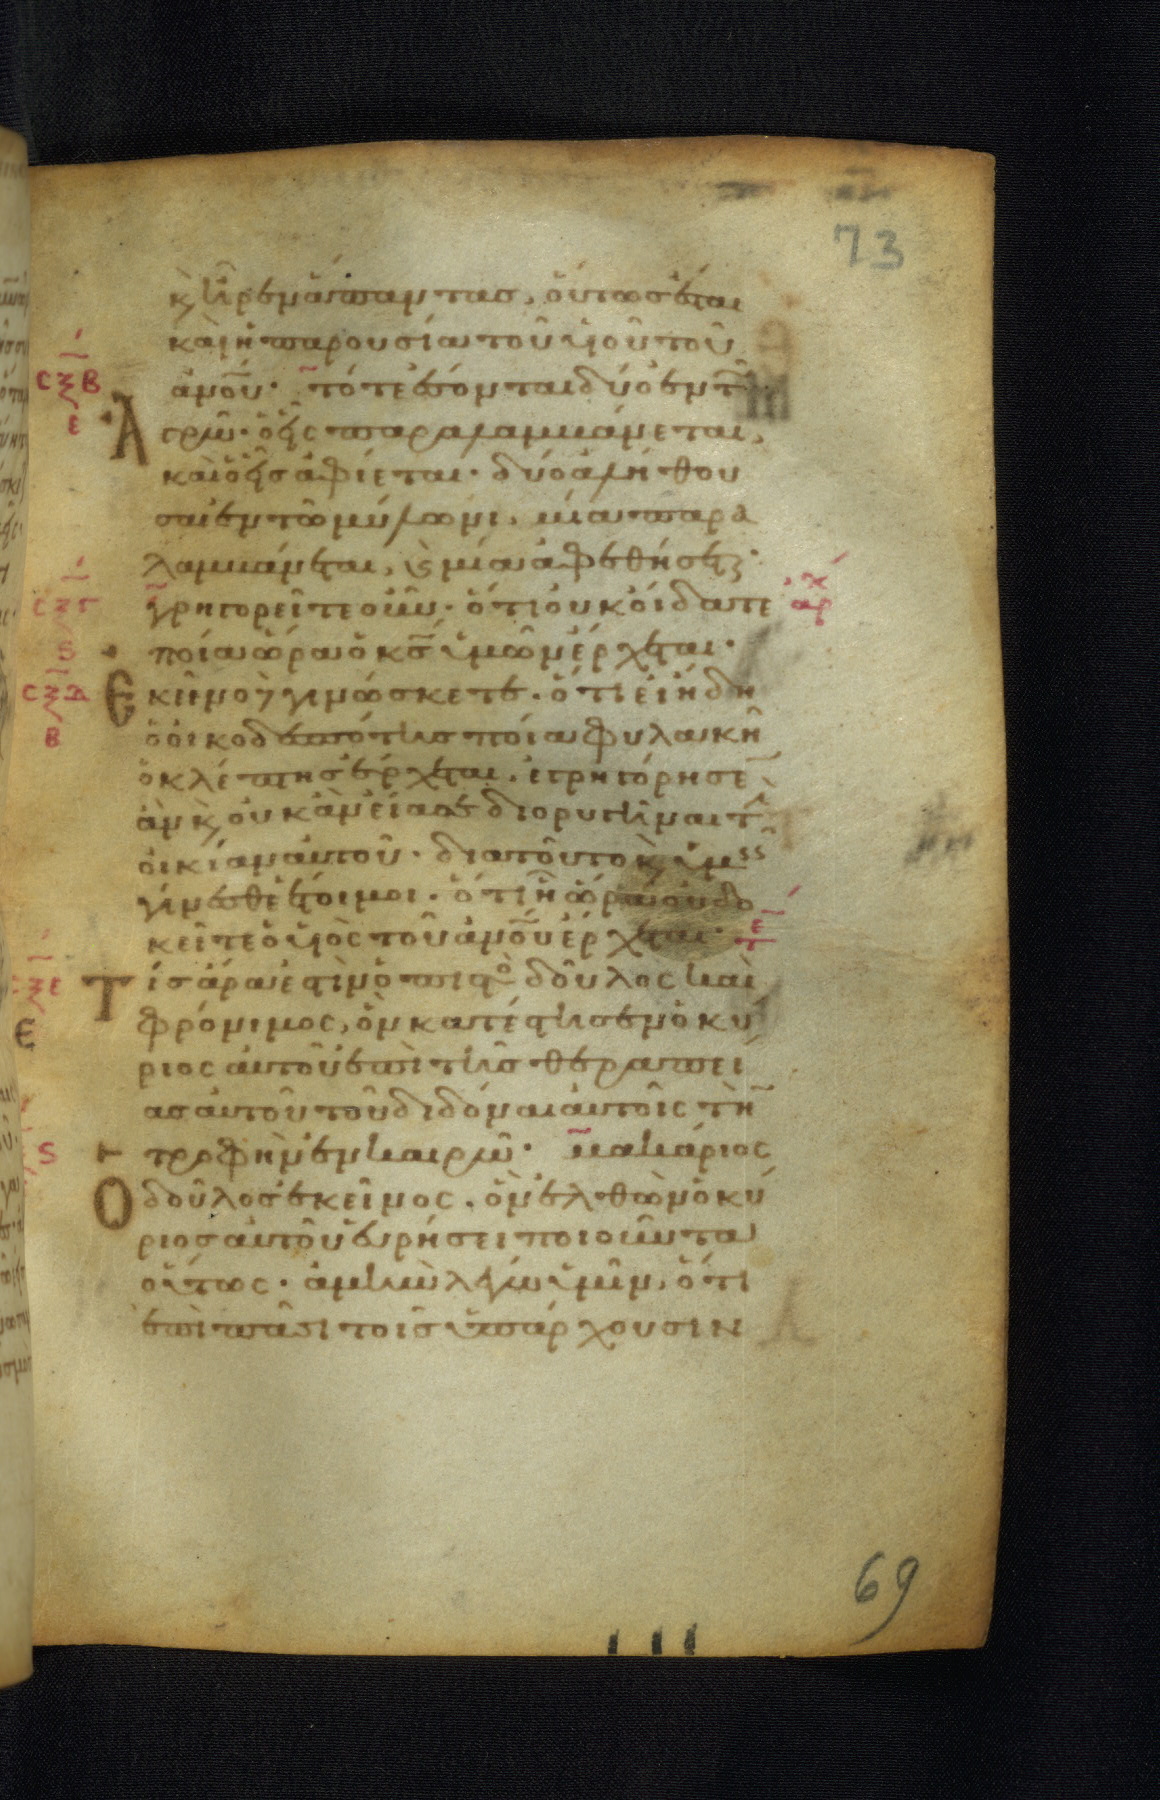 73
κ ἦρεν ἅπαντας, οὕτως ἔσται
καὶ ἡ παρουσία τοῦ υἱοῦ τοῦ
ἀνου· τότε ἔσονται δύο ἐν τῶ
ΑΓρῶ· ὁ εἷς παραλαμβάνεται,
καὶ ὁ εἷς ἀφίεται· δύο ἀλήθου
σαι ἐν τῶ μύλωνι, μία παρα
λαμβάνεται, κ μία ἀφεθήσεται·
γρηγορεῖτε οὖν· ὅτι οὐκ οἴδατε αρχ
ποία ὥρα ὁ κς ὑμῶν ἔρχεται·
Εκεῖνο γινώσκετε· ὅτι εἰ ἤδη
ὁ οἰκοδεσπότης ποία φυλακῆ
ὁ κλέπτης ἔρχεται, ἐγρηγόρησεν
ἂν κ οὐκ ἂν εἴασε διορυγῆναι τὴν
οἰκίαν αὐτοῦ· διατοῦτο κ ὑμεῖς
γίνεσθε ἕτοιμοι· ὅτι ἧ ὥρα οὐ δο
κεῖτε ὁ υἱὸς τοῦ ἀνου ἔρχεται· τε
Τίς ἄρα ἐστὶν ὁ πιστὸς δοῦλος καὶ
φρόνιμος, ὃν κατέστησεν ὁ κύ
ριος αὐτοῦ ἐπὶ τῆς θεραπεί
ας αὐτοῦ τοῦ διδόναι αὐτοῖς τὴν
τροφὴν ἐν καιρῶ· μακάριος
Ο δοῦλος ἐκεῖνος, ὃν ἐλθὼν ὁ κύ
ριος αὐτοῦ εὑρήσει ποιοῦντα
οὕτως· ἀμὴν λέγω ὑμῖν, ὅτι
ἐπὶ πᾶσι τοῖς ὑπάρχουσιν
CΞΒ
Ε
CΞΓ
S
CΞΔ
Β
CΞΕ
Ε
S
69